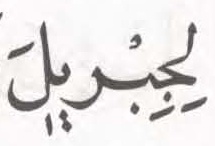 لِجِبْرِيلَ